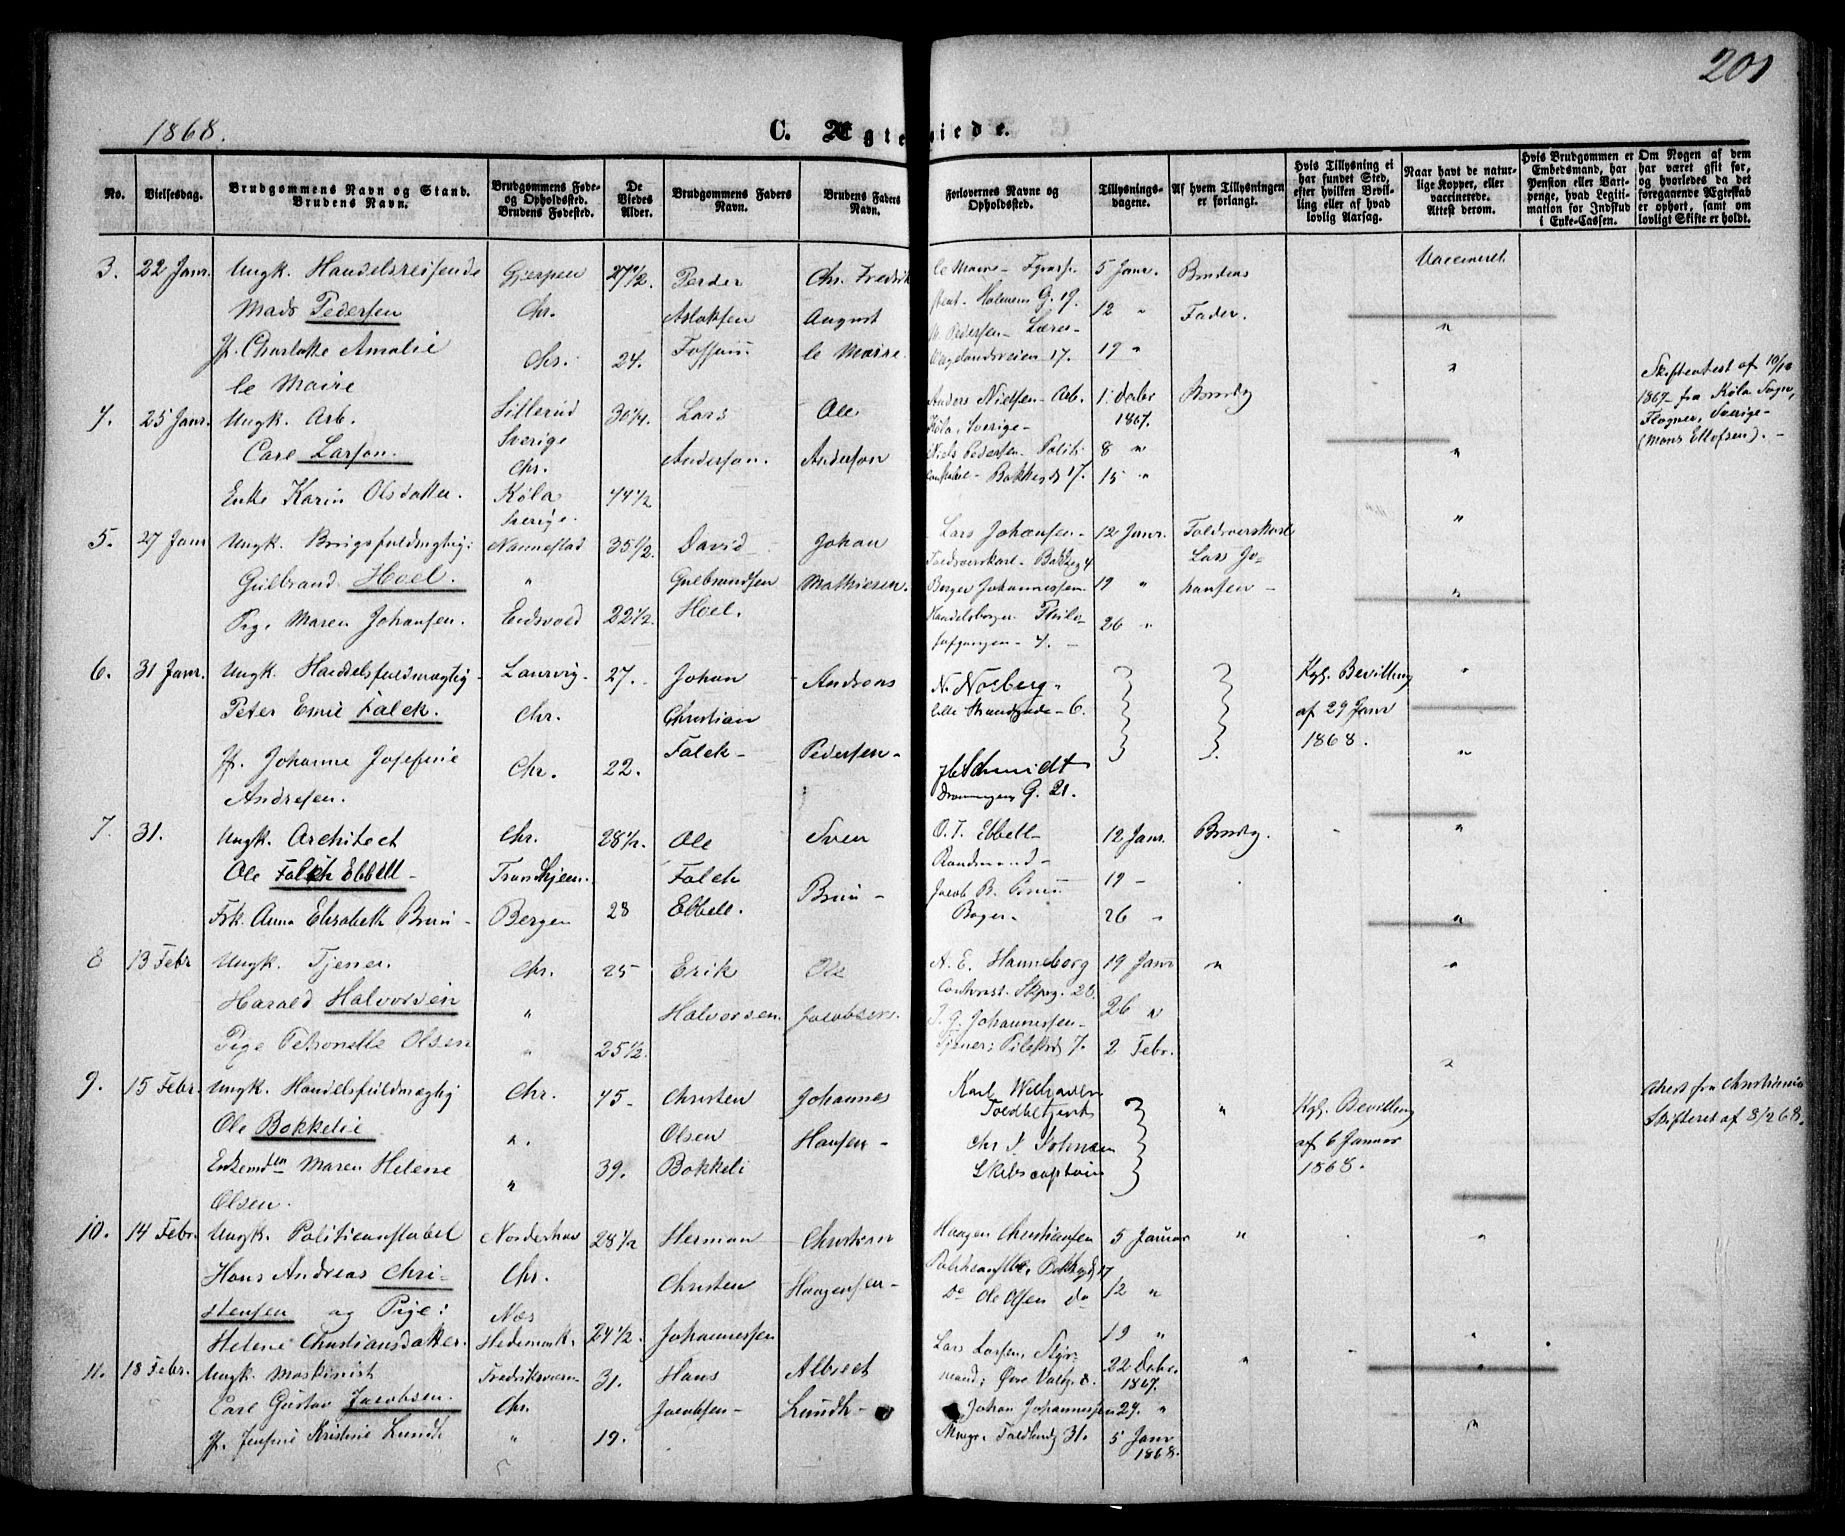 201
1868.
C. Ægteviede.
No.
Vielsesdag.
Brudgommens Navn og Stand.
Brudens Navn.
Brudgommens Føde-
og Opholdssted.
Brudens Fødested.
De
Viedes
Alder.
Brudgommens Faders
Navn.
Brudens Faders
Navn.
Forlovernes Navne og
Opholdssted.
Tillysnings-
dagene.
Af hvem Tillysningen
er forlangt.
Hvis Tillysning ei
har fundet Sted,
efter hvilken Bevil-
ling eller af hvad
lovlig Aarsag.
Naar havt de natur-
lige Kopper, eller
vaccinerede.
Attest derom.
Hvis Brudgommen er
Embedsmand, har
Pension eller Vart-
penge, hvad Legiti-
mation for Indskud
i Enke-Cassen.
Om Nogen af dem
har været gift før,
og hvorledes da det
foregaaende Ægteskab
er ophørt, samt om
lovligt Skifte er holdt.
3. 22 Janr. Ungk. Handelsreisende Gjerpen 27 1/2 Peder Chr. Fredrik le Maire 5 Janr. Brudens Vaccineret
Mads Pedersen Chr. Aslaksen August Holmens G. 19. 12 " Fader. "
Jf. Charlotte Amalie Chr. 24. Fossum le Maire M. Pedersen 17. 19 " "
le Maire
4. 25 Janr. Ungk. Arb. Sillerud 30 1/4 Lars Ole Anders Nielsen Arb. 1. Decbr Brudg Skifteattest af 10/10
Carl Larson. Sverige Anderson. Anderson Køla, Sverige 1867. 1867 fra Køla Sogn,
Chr. Niels Pedersen Politi- 8 " " Sverige
Enke Karin Olsdatter. Køla 44 1/2 constabel Bakkegd 17. 15 " (Mons Ellofsen).
Sverige. "
5. 27 Janr Ungk. Brugsfuldmægtig: Nannestad 35 1/2 David Johan Lars Johansen 12 Janr. Toldroerskarl
Gulbrand Hoel. " Gulbrandsen Mathiesen. Toldroerskarl Bakkeg 4 Lars Jo-
Pige Maren Johansen. Eidsvold 22 1/2 Hoel. Berger Johannessen 19 " hansen "
Handelsborger 26 "
6. 31 Janr. Ungk. Handelsfuldmægtig Laurvig 27. Johan Andreas N. Norberg Kgl. Bevilling "
Peter Emil Falck. Chr. Christian Lille Strandgade 6. af 29 Janr
Jf. Johanne Josefine Chr. 22. Falck Pedersen Schmidt 1868. "
Andresen. Dronningens G. 21.
7. 31. Ungk. Architect Chr. 28 1/2. Ole Sven O. T. Ebbell 12 Janr. Brudg. "
Ole Falch Ebbell Trondhjem. Falch Brun 19
Frk. Anna Elisabeth Brun Bergen 28 Ebbell. Jacob B. Bager 26 " "
8 13 Febr Ungk. Tjener. Chr. 25 Erik Ole A. E. Hanneborg 19 Janr " "
Harald Halvorsen " Halvorsen. Jacobsen. 26 "
Pige Petronelle Olsen " 25 1/2. J. G. Johannessen 2 Febr. "
Tjener; Pilestrd 7.
9. 15 Febr. Ungk. Handelsfuldmægtig Chr. 45 Christen Johannes Karl Welhaven " Kgl. Bevilling Attest fra Christiania
Ole Bakkelie ". Olsen Hansen Toldbetjent af 6 Januar Skifteret af 8/2 68.
Enkemdn Maren Helene " 39. Bakkeli Chr. J. 1868.
Olsen. Skibscaptain
10. 14 Febr. Ungk. Politiconstabel Norderhov 28 1/2 Herman Christian Haagen Christiansen 5 Januar " "
Hans Andreas Chri- Chr. Christen Haagensen 12 "
stensen og Pige: Næs Do Ole Olsen do
Helene Christiansdatter. Hedemark. 24 1/2. Johannessen 19 " "
11. 18 Febr. Ungk. Maskinist Fredriksværn 31. Hans Albrect Lars Larsen, Styr- 22 Decbr. "
Carl Gustav Jacobsen. Chr. Jacobsen Lundh mand; 1867.
Jf. Jensine Kristine Lundh " 19. Johan Johannessen 29. " "
31. 5 Janr
1868.